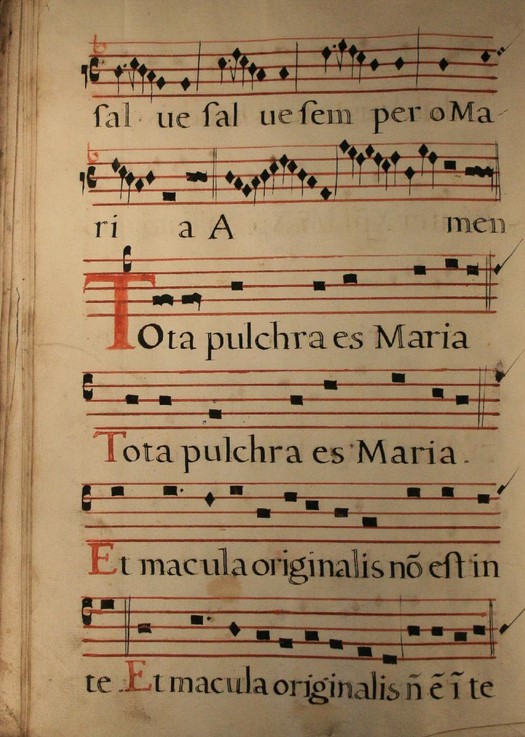 sal ue sal ue sem per o Ma
ri a A men
Tota pulchra es Maria
Tota pulchra es Maria.
Et macula originalis nõ est in
te. Et macula originalis ñ ẽ ĩ te